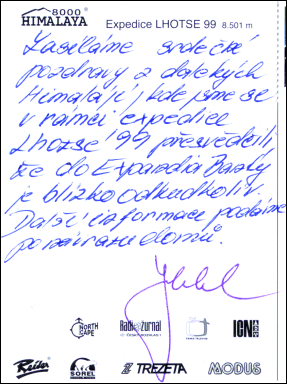 8000
HIMALAYA
Expedice LHOTSE 99 8.501 m
Zasíláme srdečné
pozdravy z dalekých
Himalájí, kde jsme se
v rámci expedice
Lhotse '99 přesvědčili,
že do Expandia Banky
je blízko odkudkoliv.
Další informace podáme
po návratu domů.
NORTH
CAPE
Radiožurnál
ČESKÝ ROZHLAS 1
ČESKÁ TELEVIZE
Reiter
SOREL
TREZETA
MODUS